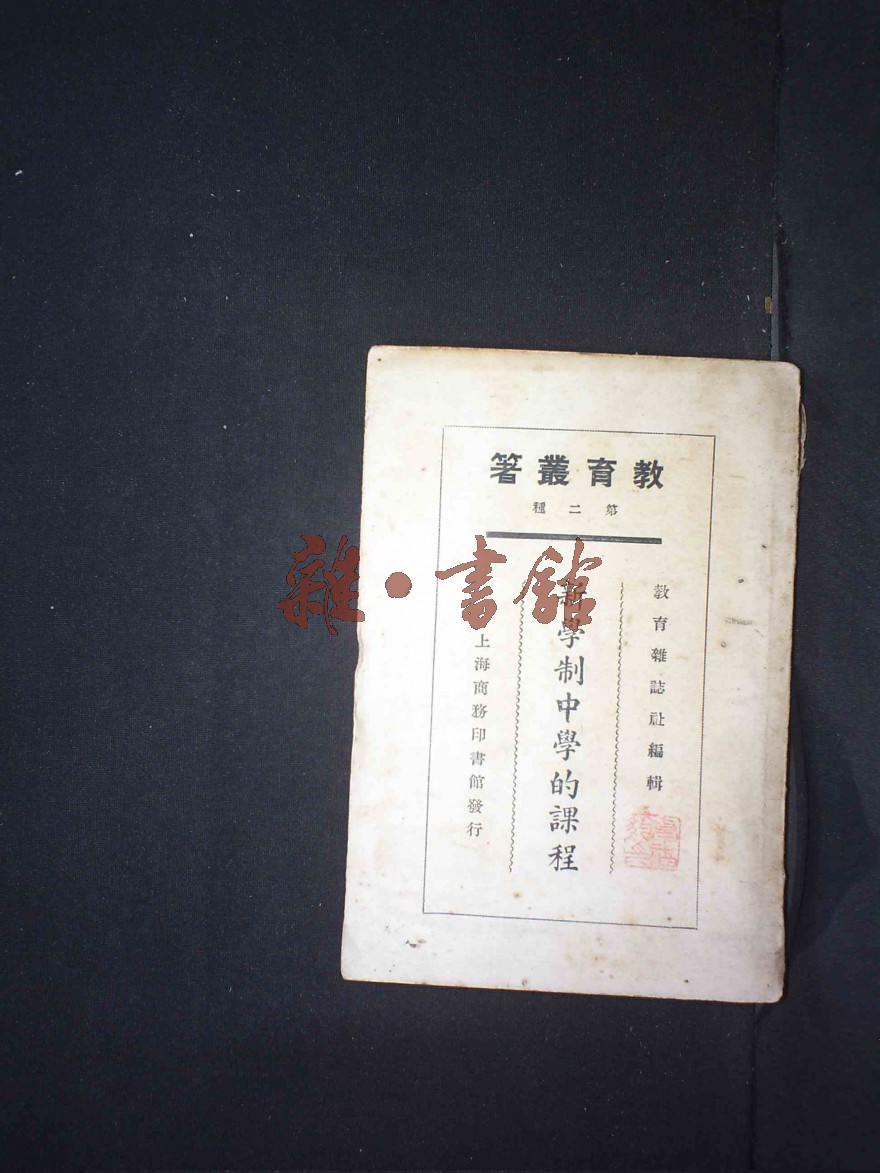 教育叢著
第二種
教育雜誌社編輯
新學制中學的課程
上海商務印書館發行
雜·書館